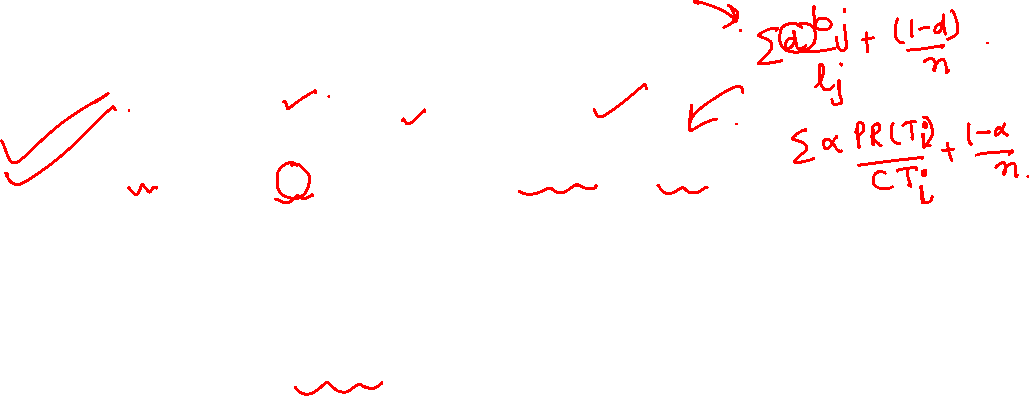 Σ d bj / lj + (1-d) / n .
Σ α PR(Ti) / CTi + 1-α / n .